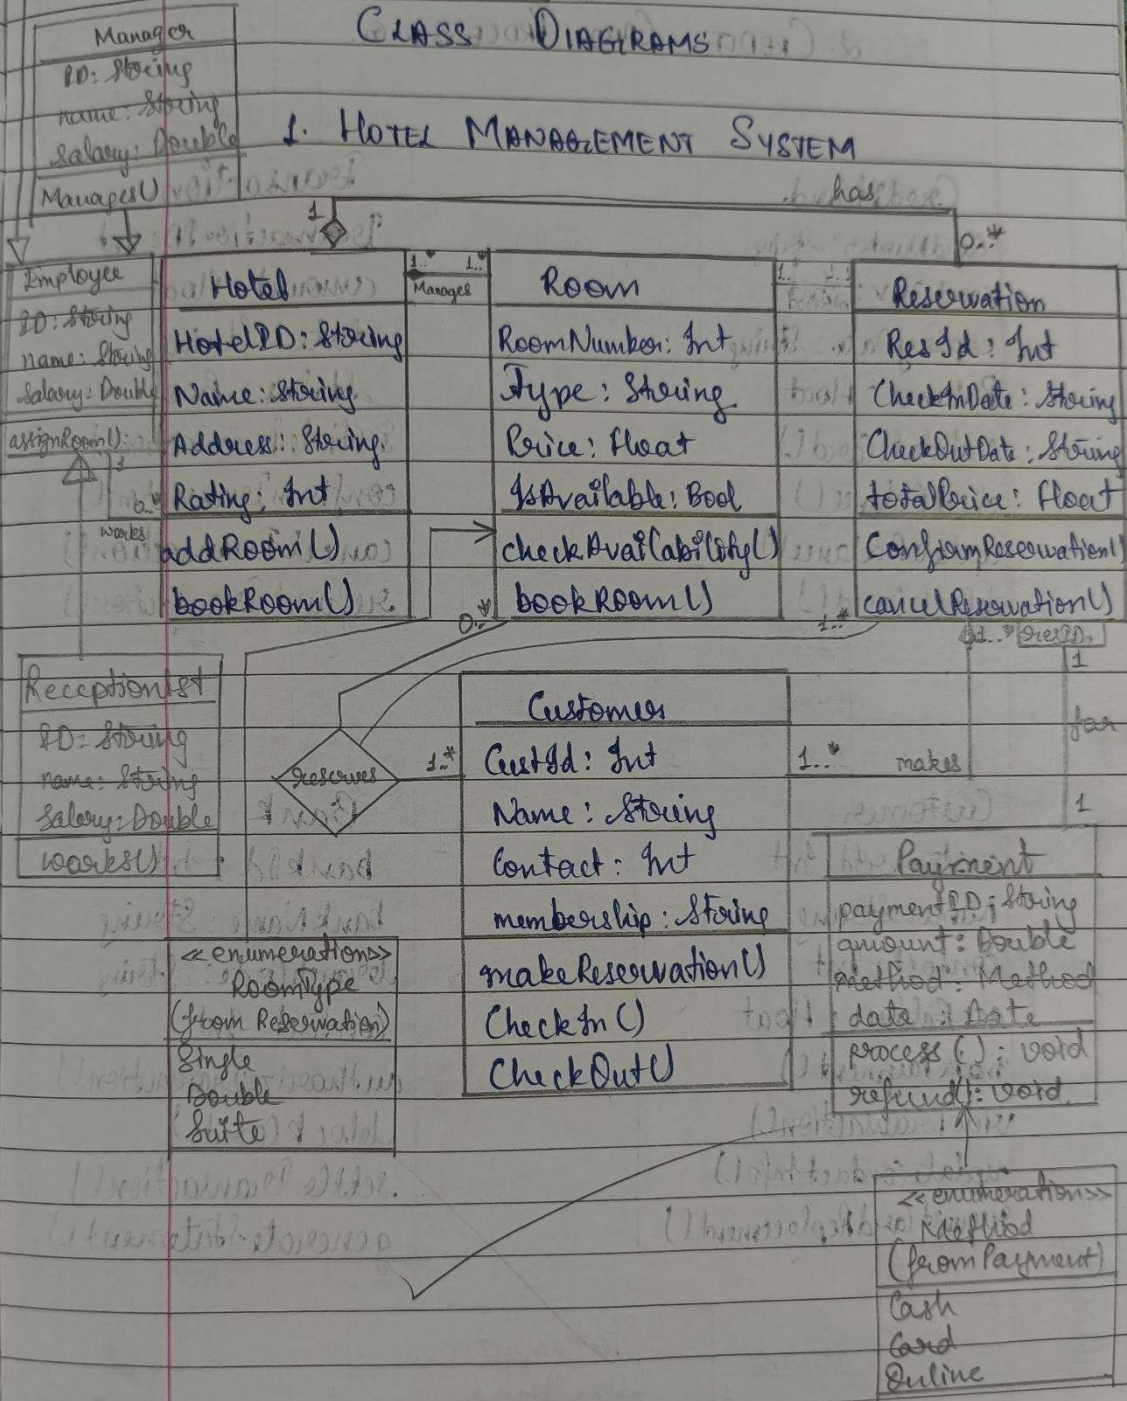 CLASS DIAGRAMS
1. HOTEL MANAGEMENT SYSTEM
Manager
ID: String
name: String
Salary: Double
Manages()
has
1
0..*
Employee
ID: String
name: String
Salary: Double
assignRoom()
1
0..*
works
Hotel
HotelID: String
Name: String
Address: String
Rating: Int
addRoom()
bookRoom()
1..* 1..*
Manages
Room
RoomNumber: Int
Type: String
Price: Float
IsAvailable: Bool
checkAvailability()
bookRoom()
1 1..*
Reservation
ResId: Int
CheckInDate: String
CheckOutDate: String
totalPrice: Float
ConfirmReservation()
cancelReservation()
0..*
1..*
1..* resID
1
for
1
Receptionist
ID: String
name: String
Salary: Double
works()
reserves
1..*
Customer
CustId: Int
Name: String
Contact: Int
membership: String
makeReservation()
CheckIn()
CheckOut()
1..*
makes
Payment
paymentID: String
amount: Double
method: Method
data: Date
process(): void
refund(): void
<<enumeration>>
RoomType
(from Reservation)
Single
Double
Suite
<<enumeration>>
Method
(from Payment)
Cash
Card
Online